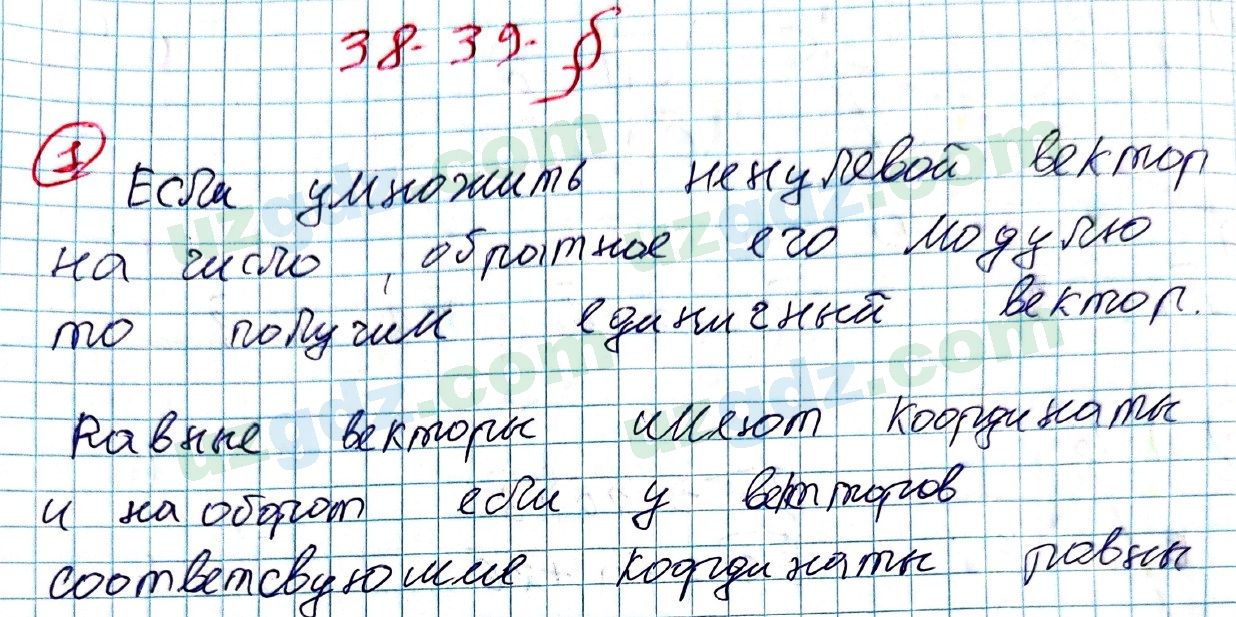 38-39-§
1 Если умножить ненулевой вектор
на число, обратное его модулю
то получим единичный вектор.
Равные векторы имеют координаты
и наоборот если у векторов
соответсвующие координаты равны
uzgdz.com uzgdz.com
uzgdz.com uzgdz.com